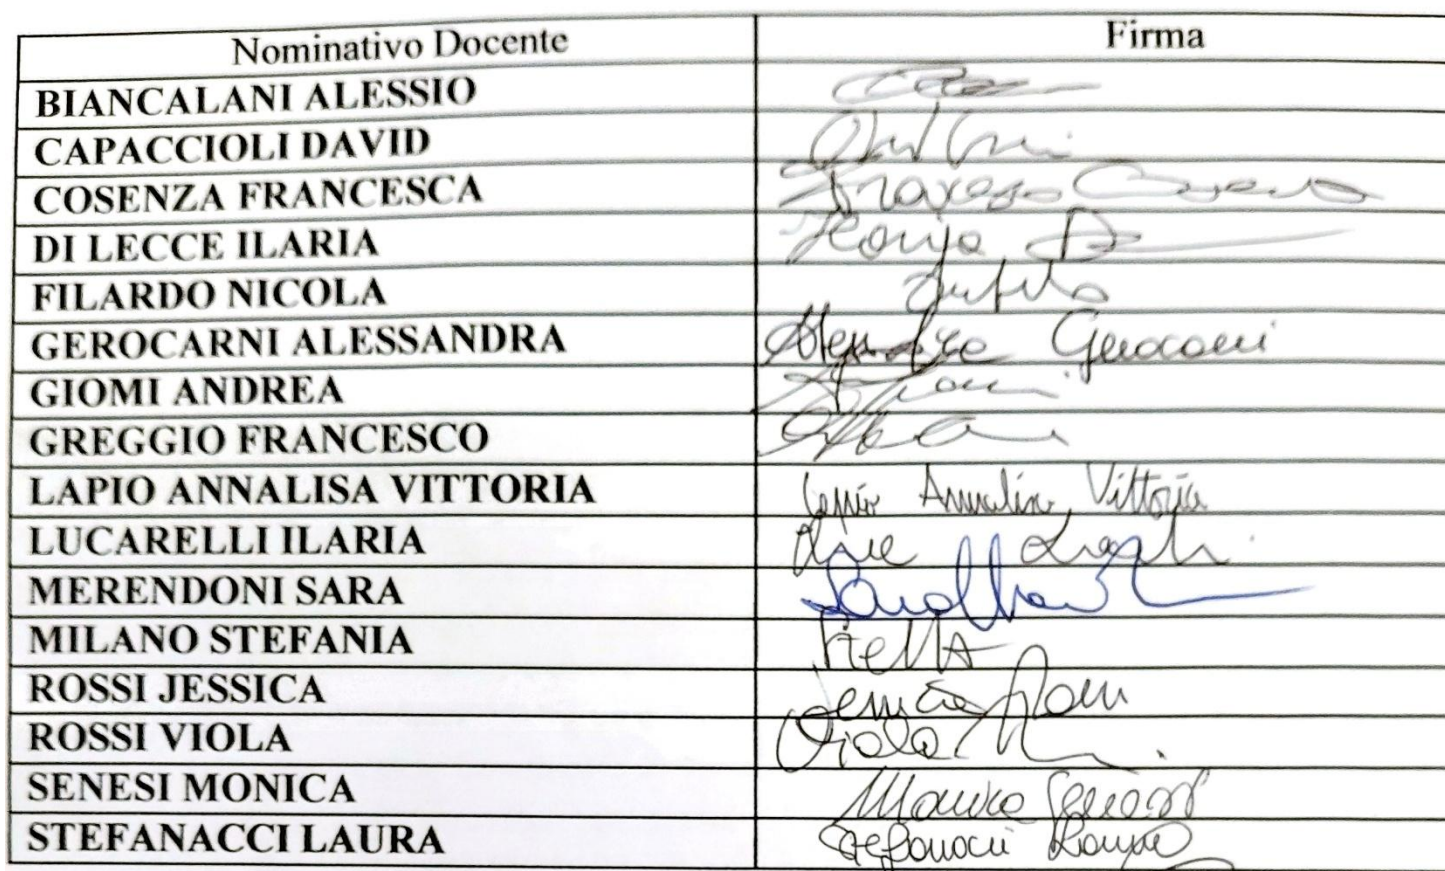 Nominativo Docente Firma
BIANCALANI ALESSIO
CAPACCIOLI DAVID
COSENZA FRANCESCA Francesca Cosenza
DI LECCE ILARIA Ilaria
FILARDO NICOLA
GEROCARNI ALESSANDRA Alessandra Gerocarni
GIOMI ANDREA
GREGGIO FRANCESCO
LAPIO ANNALISA VITTORIA Lapio Annalisa Vittoria
LUCARELLI ILARIA
MERENDONI SARA
MILANO STEFANIA
ROSSI JESSICA Jessica Rossi
ROSSI VIOLA Viola
SENESI MONICA Monica Senesi
STEFANACCI LAURA Stefanacci Laura